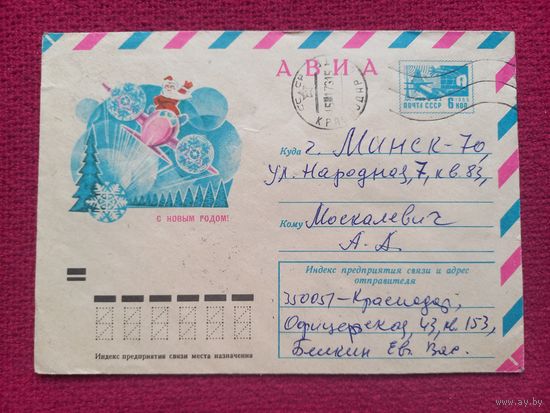 АВИА
ПОЧТА СССР 6 КОП
С НОВЫМ ГОДОМ!
Куда г. Минск-70,
ул. Народная, 7, кв. 83,
Кому Москалевич
А. А.
Индекс предприятия связи и адрес
отправителя
350051-Краснодар,
Офицерская, 43, кв 153,
Белкин Ев. Вас.
Индекс предприятия связи места назначения
www.ay.by